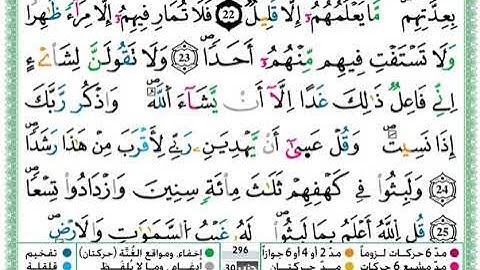 بِعِدَّتِهِم مَّا يَعْلَمُهُمْ إِلَّا قَلِيلٌ ۗ 22 فَلَا تُمَارِ فِيهِمْ إِلَّا مِرَآءً ظَٰهِرًا
وَلَا تَسْتَفْتِ فِيهِم مِّنْهُمْ أَحَدًا 23 وَلَا تَقُولَنَّ لِشَا۟ىْءٍ
إِنِّي فَاعِلٌ ذَٰلِكَ غَدًا إِلَّآ أَن يَشَآءَ ٱللَّهُ ۚ وَٱذْكُر رَّبَّكَ
إِذَا نَسِيتَ وَقُلْ عَسَىٰٓ أَن يَهْدِيَنِ رَبِّي لِأَقْرَبَ مِنْ هَٰذَا رَشَدًا
24 وَلَبِثُوا۟ فِي كَهْفِهِمْ ثَلَٰثَ مِا۟ئَةٍ سِنِينَ وَٱزْدَادُوا۟ تِسْعًا
25 قُلِ ٱللَّهُ أَعْلَمُ بِمَا لَبِثُوا۟ ۖ لَهُۥ غَيْبُ ٱلسَّمَٰوَٰتِ وَٱلْأَرْضِ ۖ
مدّ 6 حركات لزوماً مدّ 2 أو 4 أو 6 جوازاً 296 إخفاء، ومواقع الغُنَّة (حركتان) تفخيم
مدّ مشبع 6 حركات مدّ حركتان 30 إدغام، وما لا يُلفَظ قلقلة